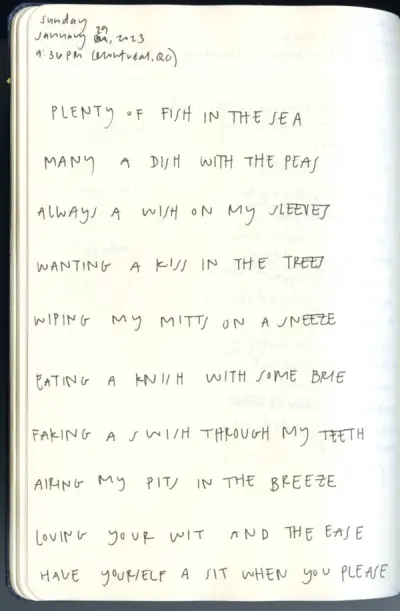 sunday
january 29, 2023
9:36 PM (Montréal, QC)
PLENTY OF FISH IN THE SEA
MANY A DISH WITH THE PEAS
ALWAYS A WISH ON MY SLEEVES
WANTING A KISS IN THE TREES
WIPING MY MITTS ON A SNEEZE
EATING A KNISH WITH SOME BRIE
FAKING A SWISH THROUGH MY TEETH
AIRING MY PITS IN THE BREEZE
LOVING YOUR WIT AND THE EASE
HAVE YOURSELF A SIT WHEN YOU PLEASE